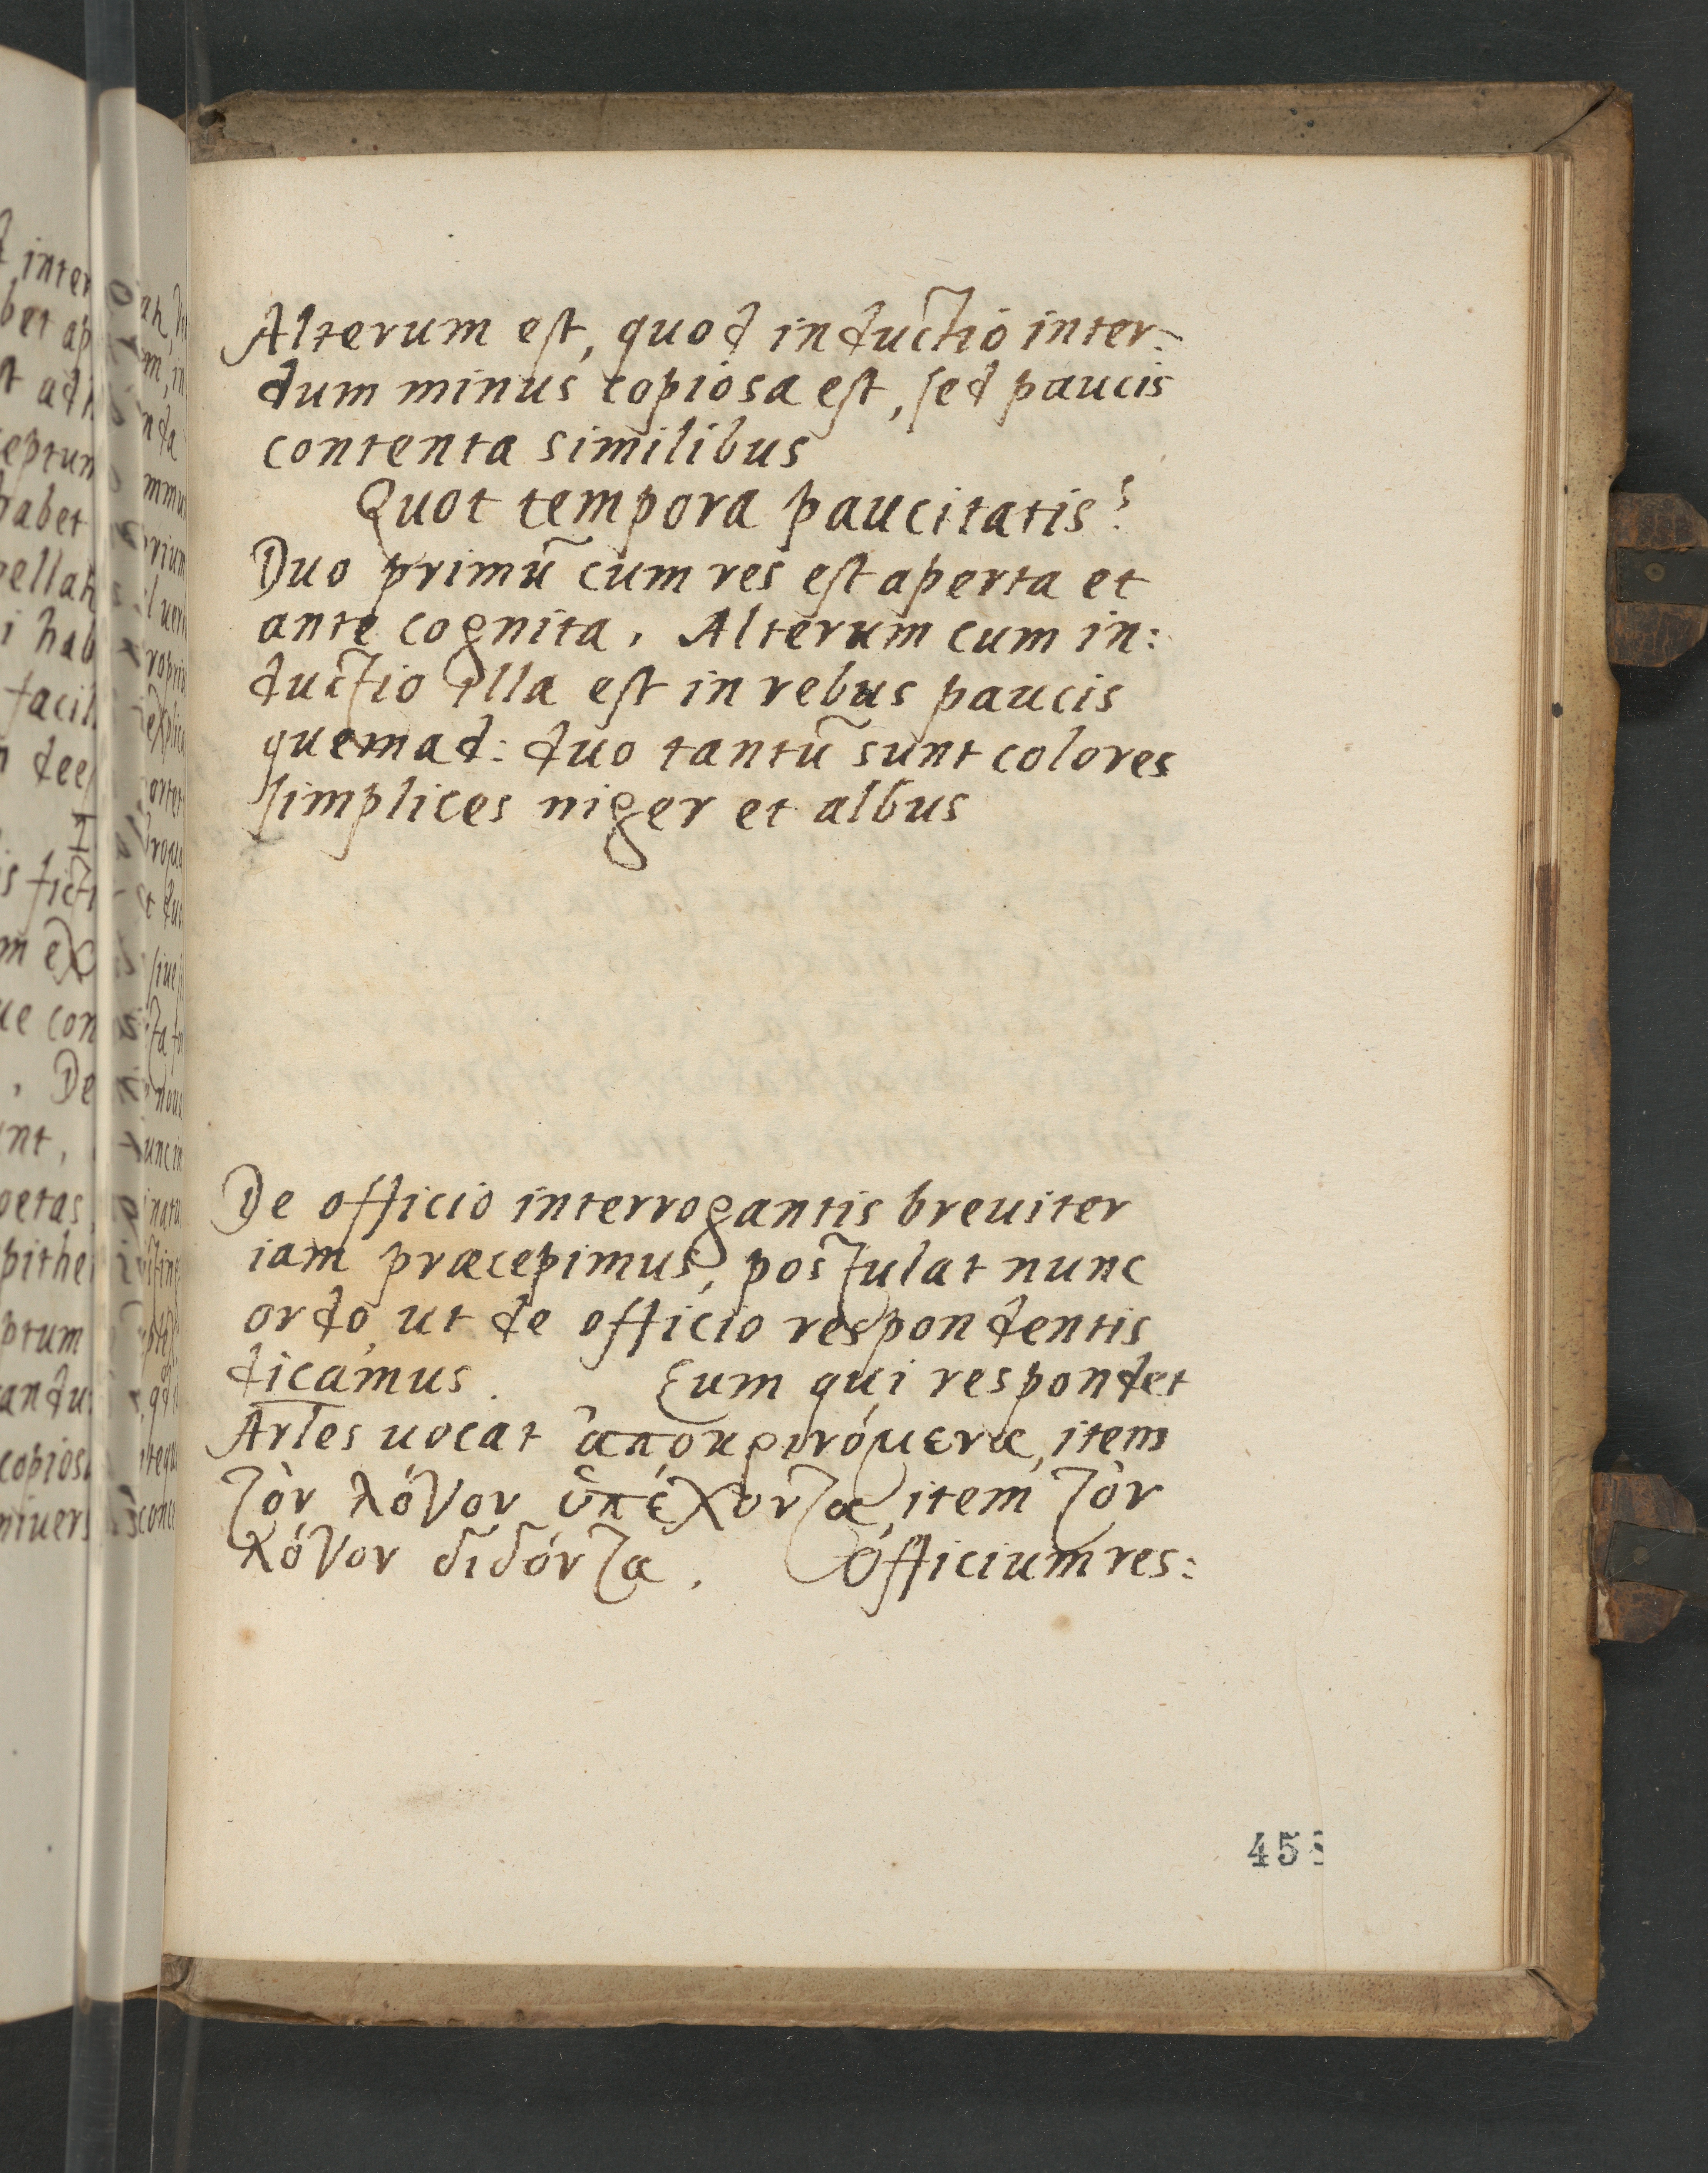 Alterum est, quod inductio inter:
dum minus copiosa est, sed paucis
contenta similibus
Quot tempora paucitatis?
Duo primũ cum res est aperta et
ante cognita. Alterum cum in:
ductio illa est in rebus paucis
quemad: duo tantũ sunt colores
simplices niger et albus
De officio interrogantis breuiter
iam præcepimus, postulat nunc
ordo, ut de officio respondentis
dicamus. Eum qui respondet
Arles uocat ἀποκρινόμενα, item
τὸν λόγον ὑπέχοντα, item τὸν
λόγον διδόντα. Officium res:
458